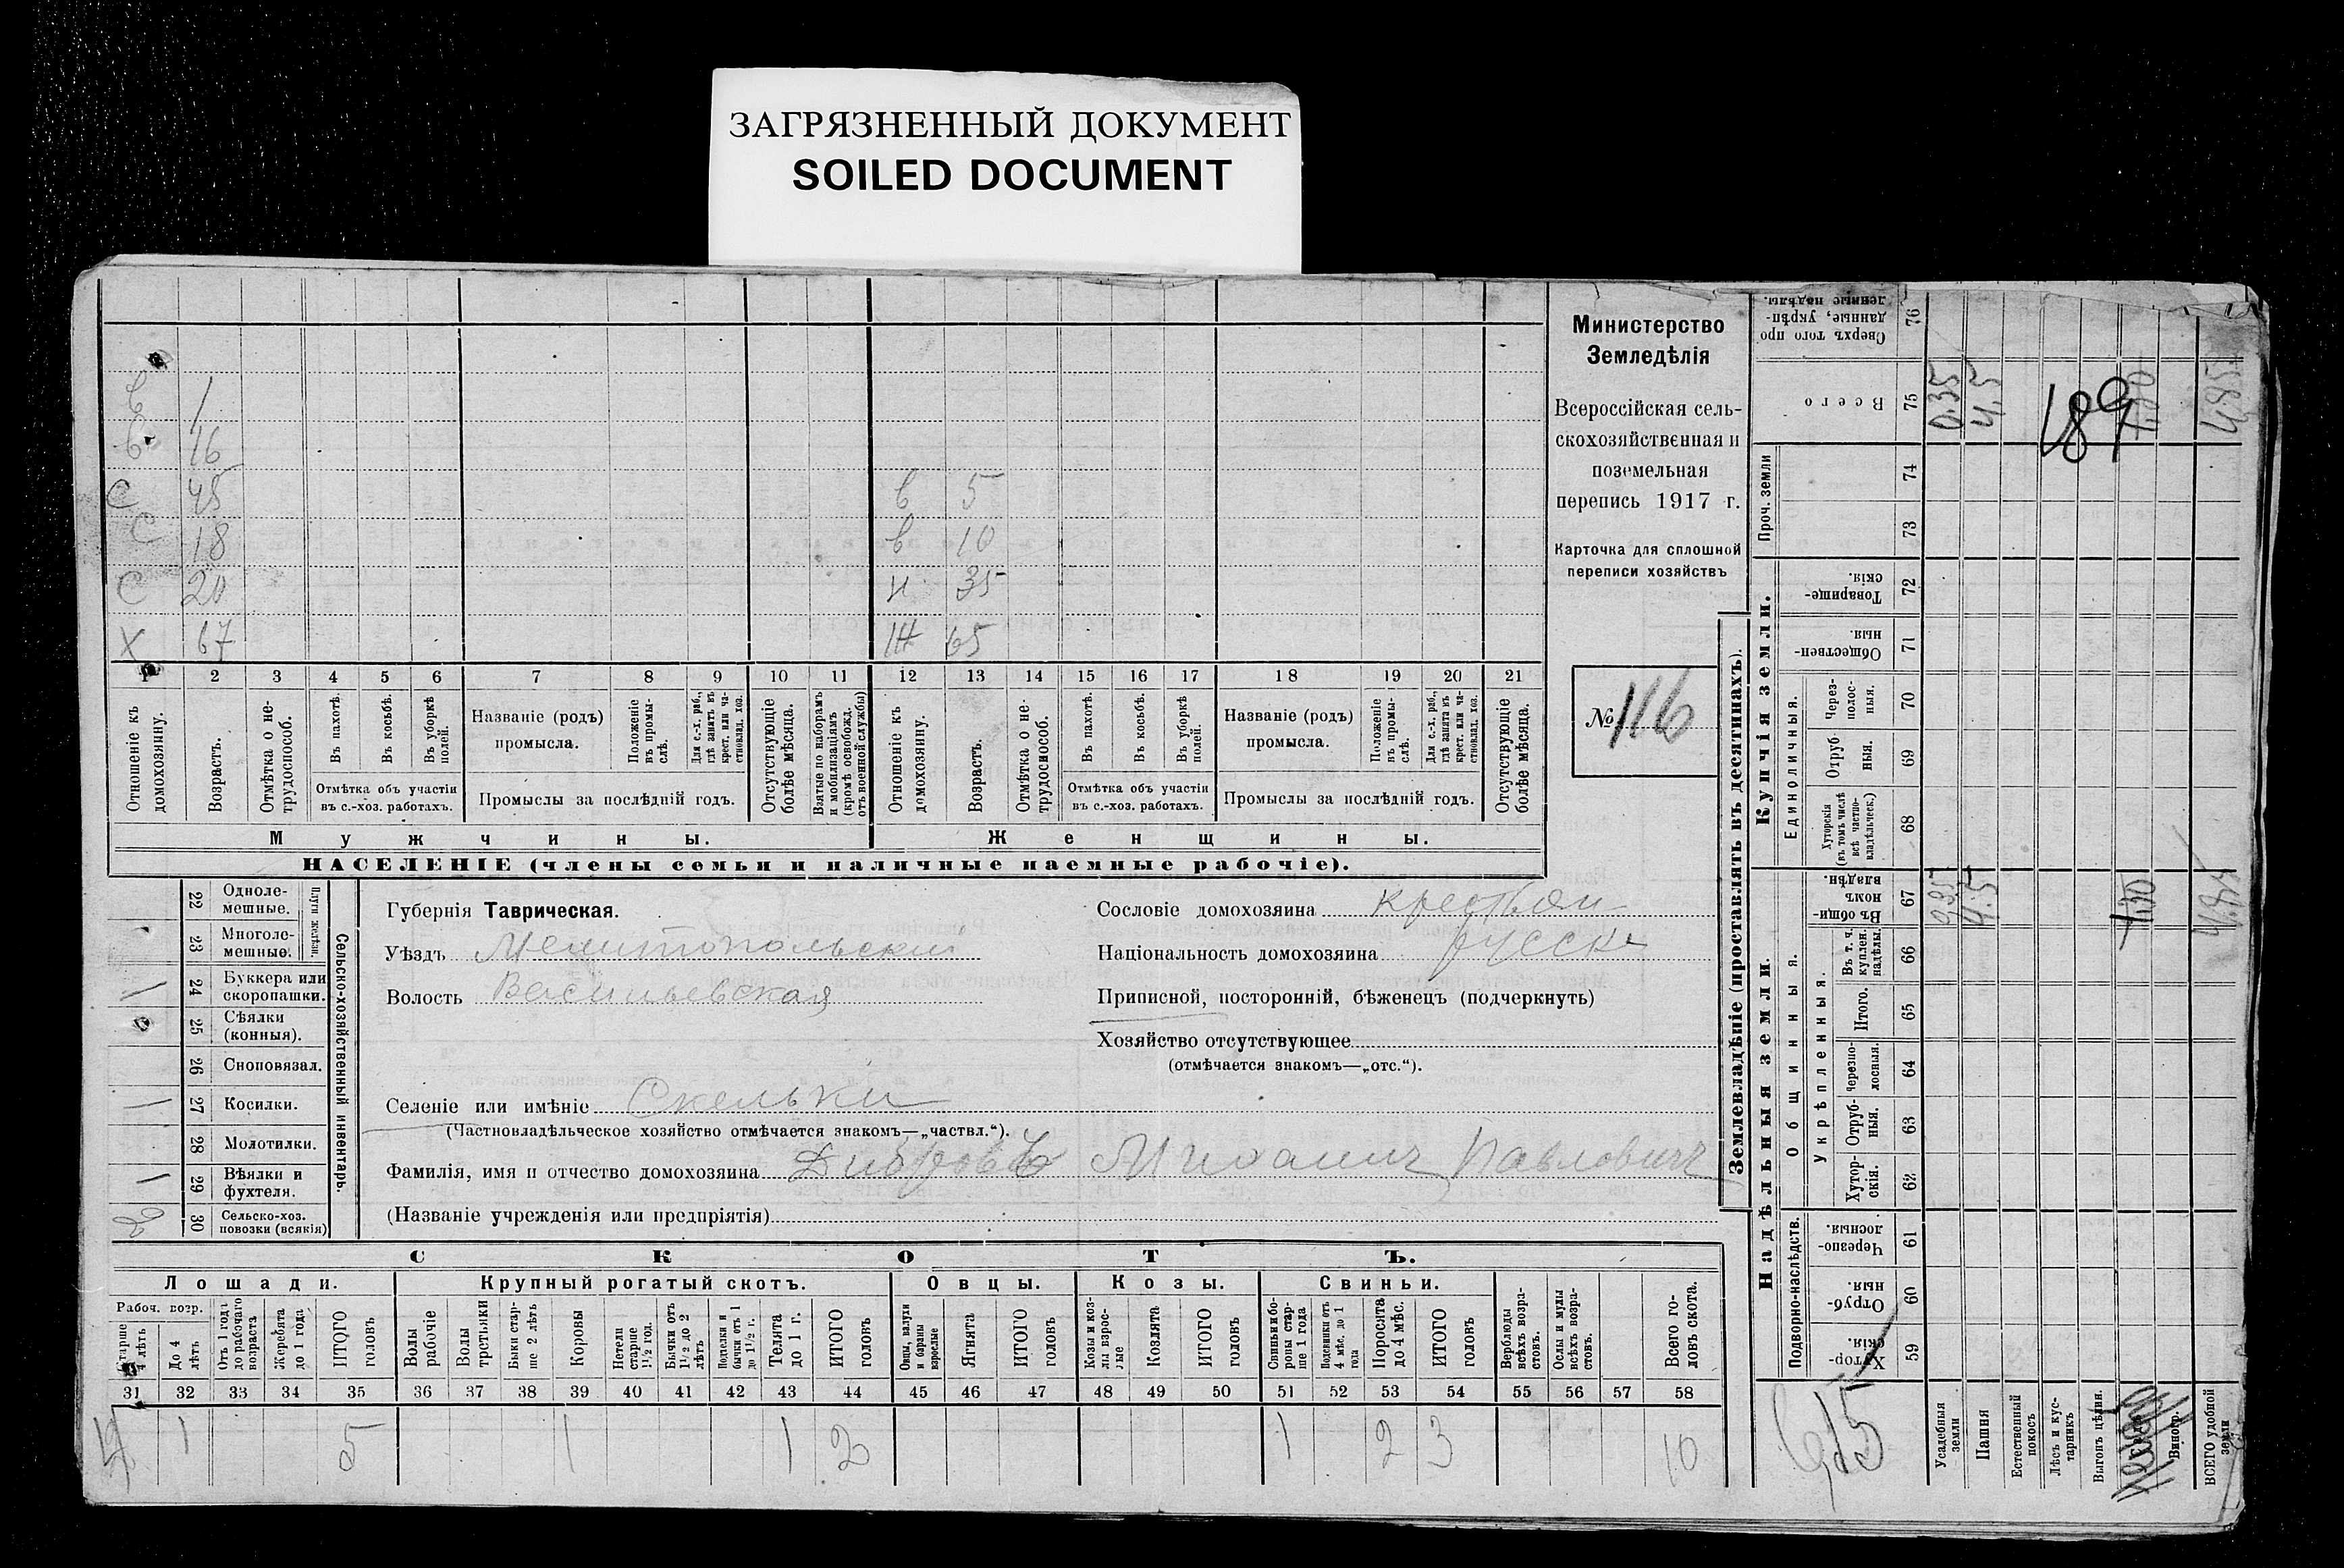 ЗАГРЯЗНЕННЫЙ ДОКУМЕНТ
SOILED DOCUMENT
Министерство
Земледѣлія
Всероссійская сель-
скохозяйственная и
поземельная
перепись 1917 г.
Карточка для сплошной
переписи хозяйствъ
№ 116
в 1
в 16
с 45 в 5
с 18 в 10
с 20 н 35
х 67 ж 65
1 2 3 4 5 6 7 8 9 10 11 12 13 14 15 16 17 18 19 20 21
Отношеніе къ домохозяину.
Возрастъ.
Отмѣтка о не-трудоспособ.
Въ пахотѣ.
Въ косьбѣ.
Въ уборкѣ полей.
Отмѣтка объ участіи
въ с.-хоз. работахъ.
Названіе (родъ)
промысла.
Положеніе въ промы-слѣ.
Для с.-х. раб., гдѣ занятъ въ крест. или ча-стновлад. хоз.
Промыслы за послѣдній годъ.
Отсутствующіе болѣе мѣсяца.
Взятые по наборамъ и мобилизаціямъ (кромѣ освобожд. отъ военной службы)
Отношеніе къ домохозяину.
Возрастъ.
Отмѣтка о не-трудоспособ.
Въ пахотѣ.
Въ косьбѣ.
Въ уборкѣ полей.
Отмѣтка объ участіи
въ с.-хоз. работахъ.
Названіе (родъ)
промысла.
Положеніе въ промы-слѣ.
Для с.-х. раб., гдѣ занята въ крест. или ча-стновлад. хоз.
Промыслы за послѣдній годъ.
Отсутствующіе болѣе мѣсяца.
Мужчины.
Женщины.
НАСЕЛЕНІЕ (члены семьи и наличные наемные рабочіе).
22 Одноле-мешные.
23 Многоле-мешные.
Плуги желѣзн.
24 Буккера или скоропашки.
25 Сѣялки (конныя).
26 Сноповязал.
27 Косилки.
28 Молотилки.
29 Вѣялки и фухтеля.
30 Сельско-хоз. повозки (всякія)
Сельско-хозяйственный инвентарь.
Губернія Таврическая.
Уѣздъ Мелитопольскій
Волость Васильевская
Селеніе или имѣніе Скельки
(Частновладѣльческое хозяйство отмѣчается знакомъ—„частвл.“).
Фамилія, имя и отчество домохозяина Павловичъ
(Названіе учрежденія или предпріятія)
Сословіе домохозяина крестьян
Національность домохозяина русск
Приписной, посторонній, бѣженецъ (подчеркнуть)
Хозяйство отсутствующее
(отмѣчается знакомъ—„отс.“).
СКОТЪ.
Лошади.
Крупный рогатый скотъ.
Овцы.
Козы.
Свиньи.
Рабоч. возр.
Старше 4 лѣтъ
До 4 лѣтъ
Отъ 1 года до рабочаго возраста
Жеребята до 1 года
ИТОГО головъ
Волы рабочіе
Волы третьяки
Быки стар-ше 2 лѣтъ
Коровы
Нетели старше 1½ год.
Бычки отъ 1½ до 2 лѣтъ
Подтелки и бычки отъ 1 до 1½ г.
Телята до 1 г.
ИТОГО головъ
Овцы, валухи и бараны взрослые
Ягнята
ИТОГО головъ
Козы и коз-лы взрос-лые
Козлята
ИТОГО головъ
Свиньи и бо-ровы стар-ше 1 года
Подсвинки отъ 4 мѣс. до 1 года
Поросята до 4 мѣс.
ИТОГО головъ
Верблюды всѣхъ возра-стовъ.
Ослы и мулы всѣхъ возра-стовъ.
Всего го-ловъ скота.
31 32 33 34 35 36 37 38 39 40 41 42 43 44 45 46 47 48 49 50 51 52 53 54 55 56 57 58
4 1 5 1 1 2 1 2 3 10
Землевладѣніе (проставлять въ десятинахъ).
Надѣльныя земли.
Купчія земли.
Проч. земли
Подворно-наслѣдств.
Общинныя.
Укрѣпленныя.
Единоличныя.
Сверхъ того про данные, укрѣп-ленные надѣлы. 76
Всего 75
74
73
Товарище-скія. 72
Обществен-ныя. 71
Через-полос-ныя. 70
Отруб-ныя. 69
Хуторскія (въ томъ числѣ всѣ частно-владѣльческ.) 68
Въ общи-номъ владѣн. 67
Въ т. ч. куплен. надѣлы. 66
Итого. 65
Черезпо-лосныя. 64
Отруб-ныя. 63
Хутор-скія. 62
Черезпо-лосныя. 61
Отруб-ныя. 60
Хутор-скія. 59
Усадебныя земли
Пашня
Естественный покосъ
Лѣсъ и кус-тарникъ
Выгонъ цѣлин.
Виногр.
ВСЕГО удобной земли
0.35 4.5 4.85
189
6,15